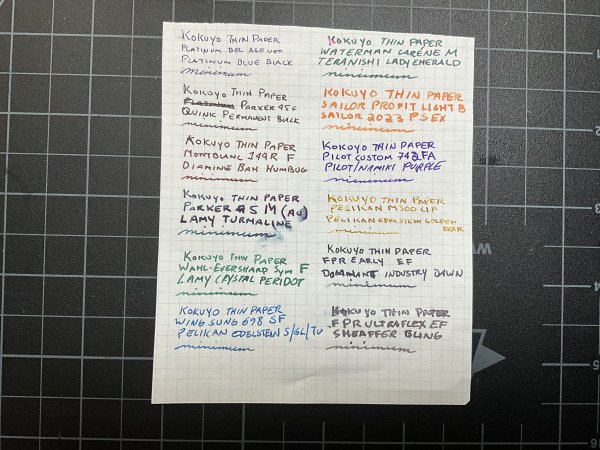 KOKUYO THIN PAPER
PLATINUM DEL AGE UEF
PLATINUM BLUE BLACK
minimum
KOKUYO THIN PAPER
PLATINUM PARKER 45 F
QUINK PERMANENT BLACK
minimum
KOKUYO THIN PAPER
MONTBLANC 144R F
DIAMINE BAH HUMBUG
minimum
KOKUYO THIN PAPER
PARKER 45 M (AU)
LAMY TURMALINE
minimum
KOKUYO THIN PAPER
WAHL-EVERSHARP SYM F
LAMY CRYSTAL PERIDOT
minimum
KOKUYO THIN PAPER
WING SUNG 698 SF
PELIKAN EDELSTEIN S/GL/TU
minimum
KOKUYO THIN PAPER
WATERMAN CARENE M
TERANISHI LADY EMERALD
minimum
KOKUYO THIN PAPER
SAILOR PROFIT LIGHT B
SAILOR 2023 PS EX
minimum
KOKUYO THIN PAPER
PILOT CUSTOM 742 FA
PILOT/NAMIKI PURPLE
minimum
KOKUYO THIN PAPER
PELIKAN M300 OF
PELIKAN EDELSTEIN GOLDEN
BERYL
minimum
KOKUYO THIN PAPER
FPR EARLY EF
DOMINANT INDUSTRY DAWN
minimum
KOKUYO THIN PAPER
FPR ULTRAFLEX EF
SHEAFFER BLING
minimum